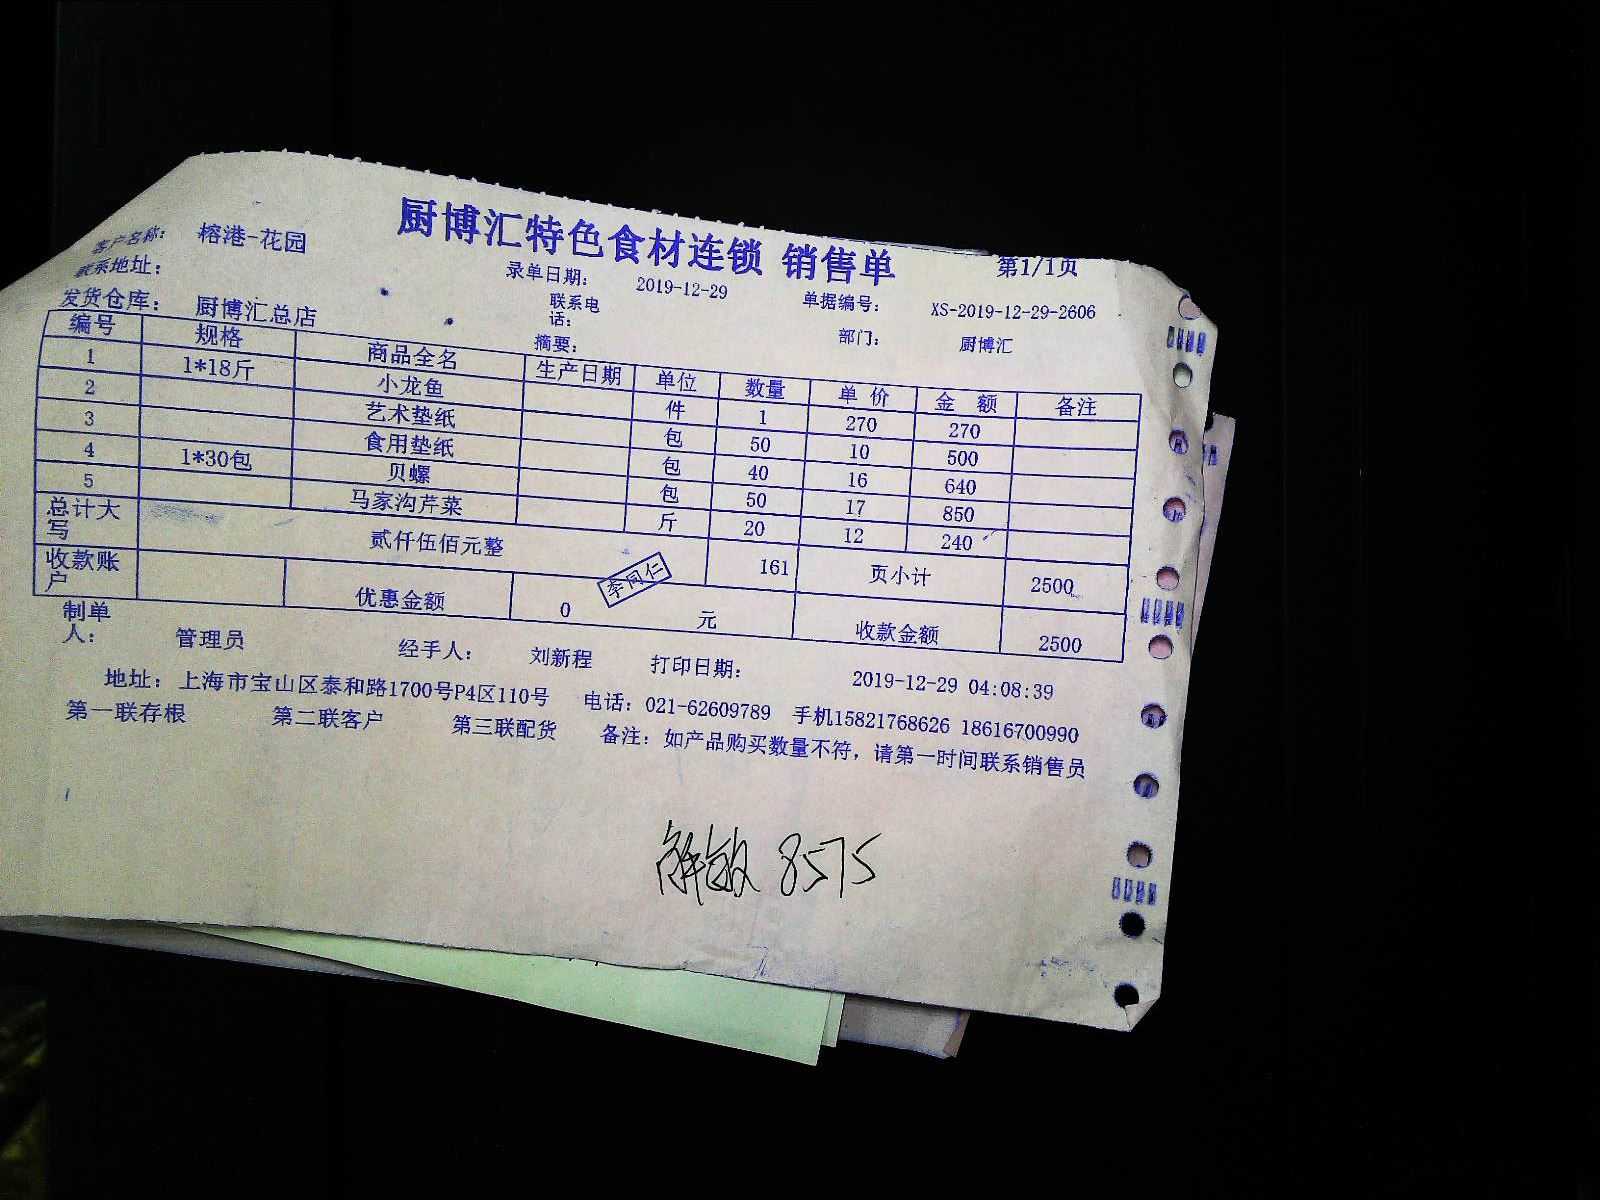 厨博汇特色食材连锁 销售单
第1/1页
客户名称: 榕港-花园
录单日期: 2019-12-29 单据编号: XS-2019-12-29-2606
联系地址: 联系电话:
发货仓库: 厨博汇总店 摘要: 部门: 厨博汇
编号 规格 商品全名 生产日期 单位 数量 单 价 金 额 备注
1 1*18斤 小龙鱼 件 1 270 270
2 艺术垫纸 包 50 10 500
3 食用垫纸 包 40 16 640
4 1*30包 贝螺 包 50 17 850
5 马家沟芹菜 斤 20 12 240
总计大写 贰仟伍佰元整 161 页小计 2500
收款账户 优惠金额 0 元 收款金额 2500
李同仁
制单人: 管理员 经手人: 刘新程 打印日期: 2019-12-29 04:08:39
地址: 上海市宝山区泰和路1700号P4区110号 电话: 021-62609789 手机15821768626 18616700990
第一联存根 第二联客户 第三联配货 备注: 如产品购买数量不符, 请第一时间联系销售员
8575